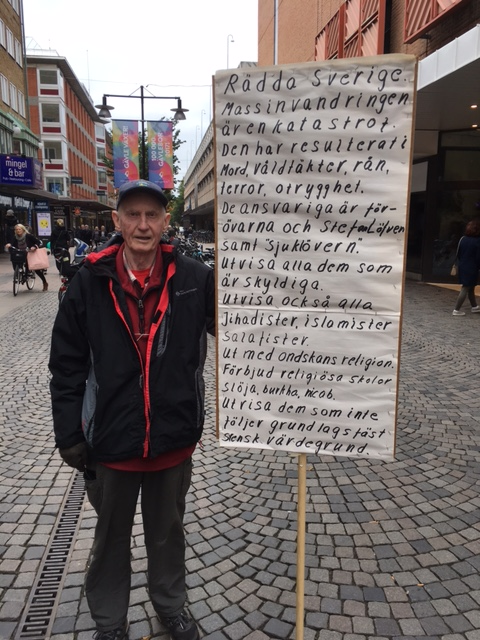 Rädda Sverige.
Massinvandringen
är en katastrof.
Den har resulterat i
Mord, våldtäkter, rån,
terror, otrygghet.
De ansvariga är för-
övarna och Stefan Löfven
samt "sjuklövern".
Utvisa alla dem som
är skyldiga.
Utvisa också alla
Jihadister, islamister
Salafister.
Ut med ondskans religion.
Förbjud religiösa skolor
slöja, burkha, nicob.
Utvisa dem som inte
följer grundlagsfäst
svensk värdegrund.
mingel
& bar